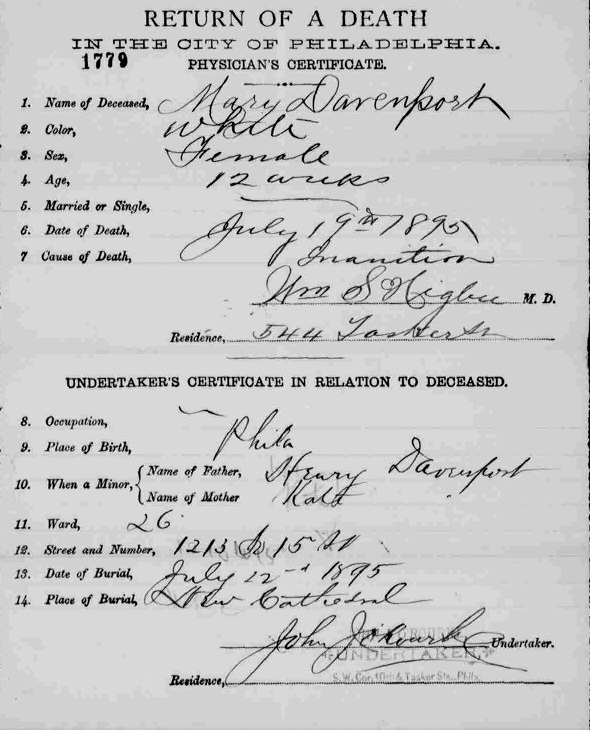 RETURN OF A DEATH
IN THE CITY OF PHILADELPHIA.
1779
PHYSICIAN'S CERTIFICATE.
1. Name of Deceased, Mary Davenport
2. Color, White
3. Sex, Female
4. Age, 12 weeks
5. Married or Single,
6. Date of Death, July 19th 1895
7 Cause of Death, Inanition
Wm S Higbee M. D.
Residence, 544 Tasker St
UNDERTAKER'S CERTIFICATE IN RELATION TO DECEASED.
8. Occupation,
9. Place of Birth, Phila
10. When a Minor, Name of Father, Henry Davenport
Name of Mother Kate
11. Ward, 26
12. Street and Number, 1213 So 15 St
13. Date of Burial, July 22nd 1895
14. Place of Burial, New Cathedral
John J Undertaker.
UNDERTAKER,
Residence, S. W. Cor. & Tasker Sts., Phila.